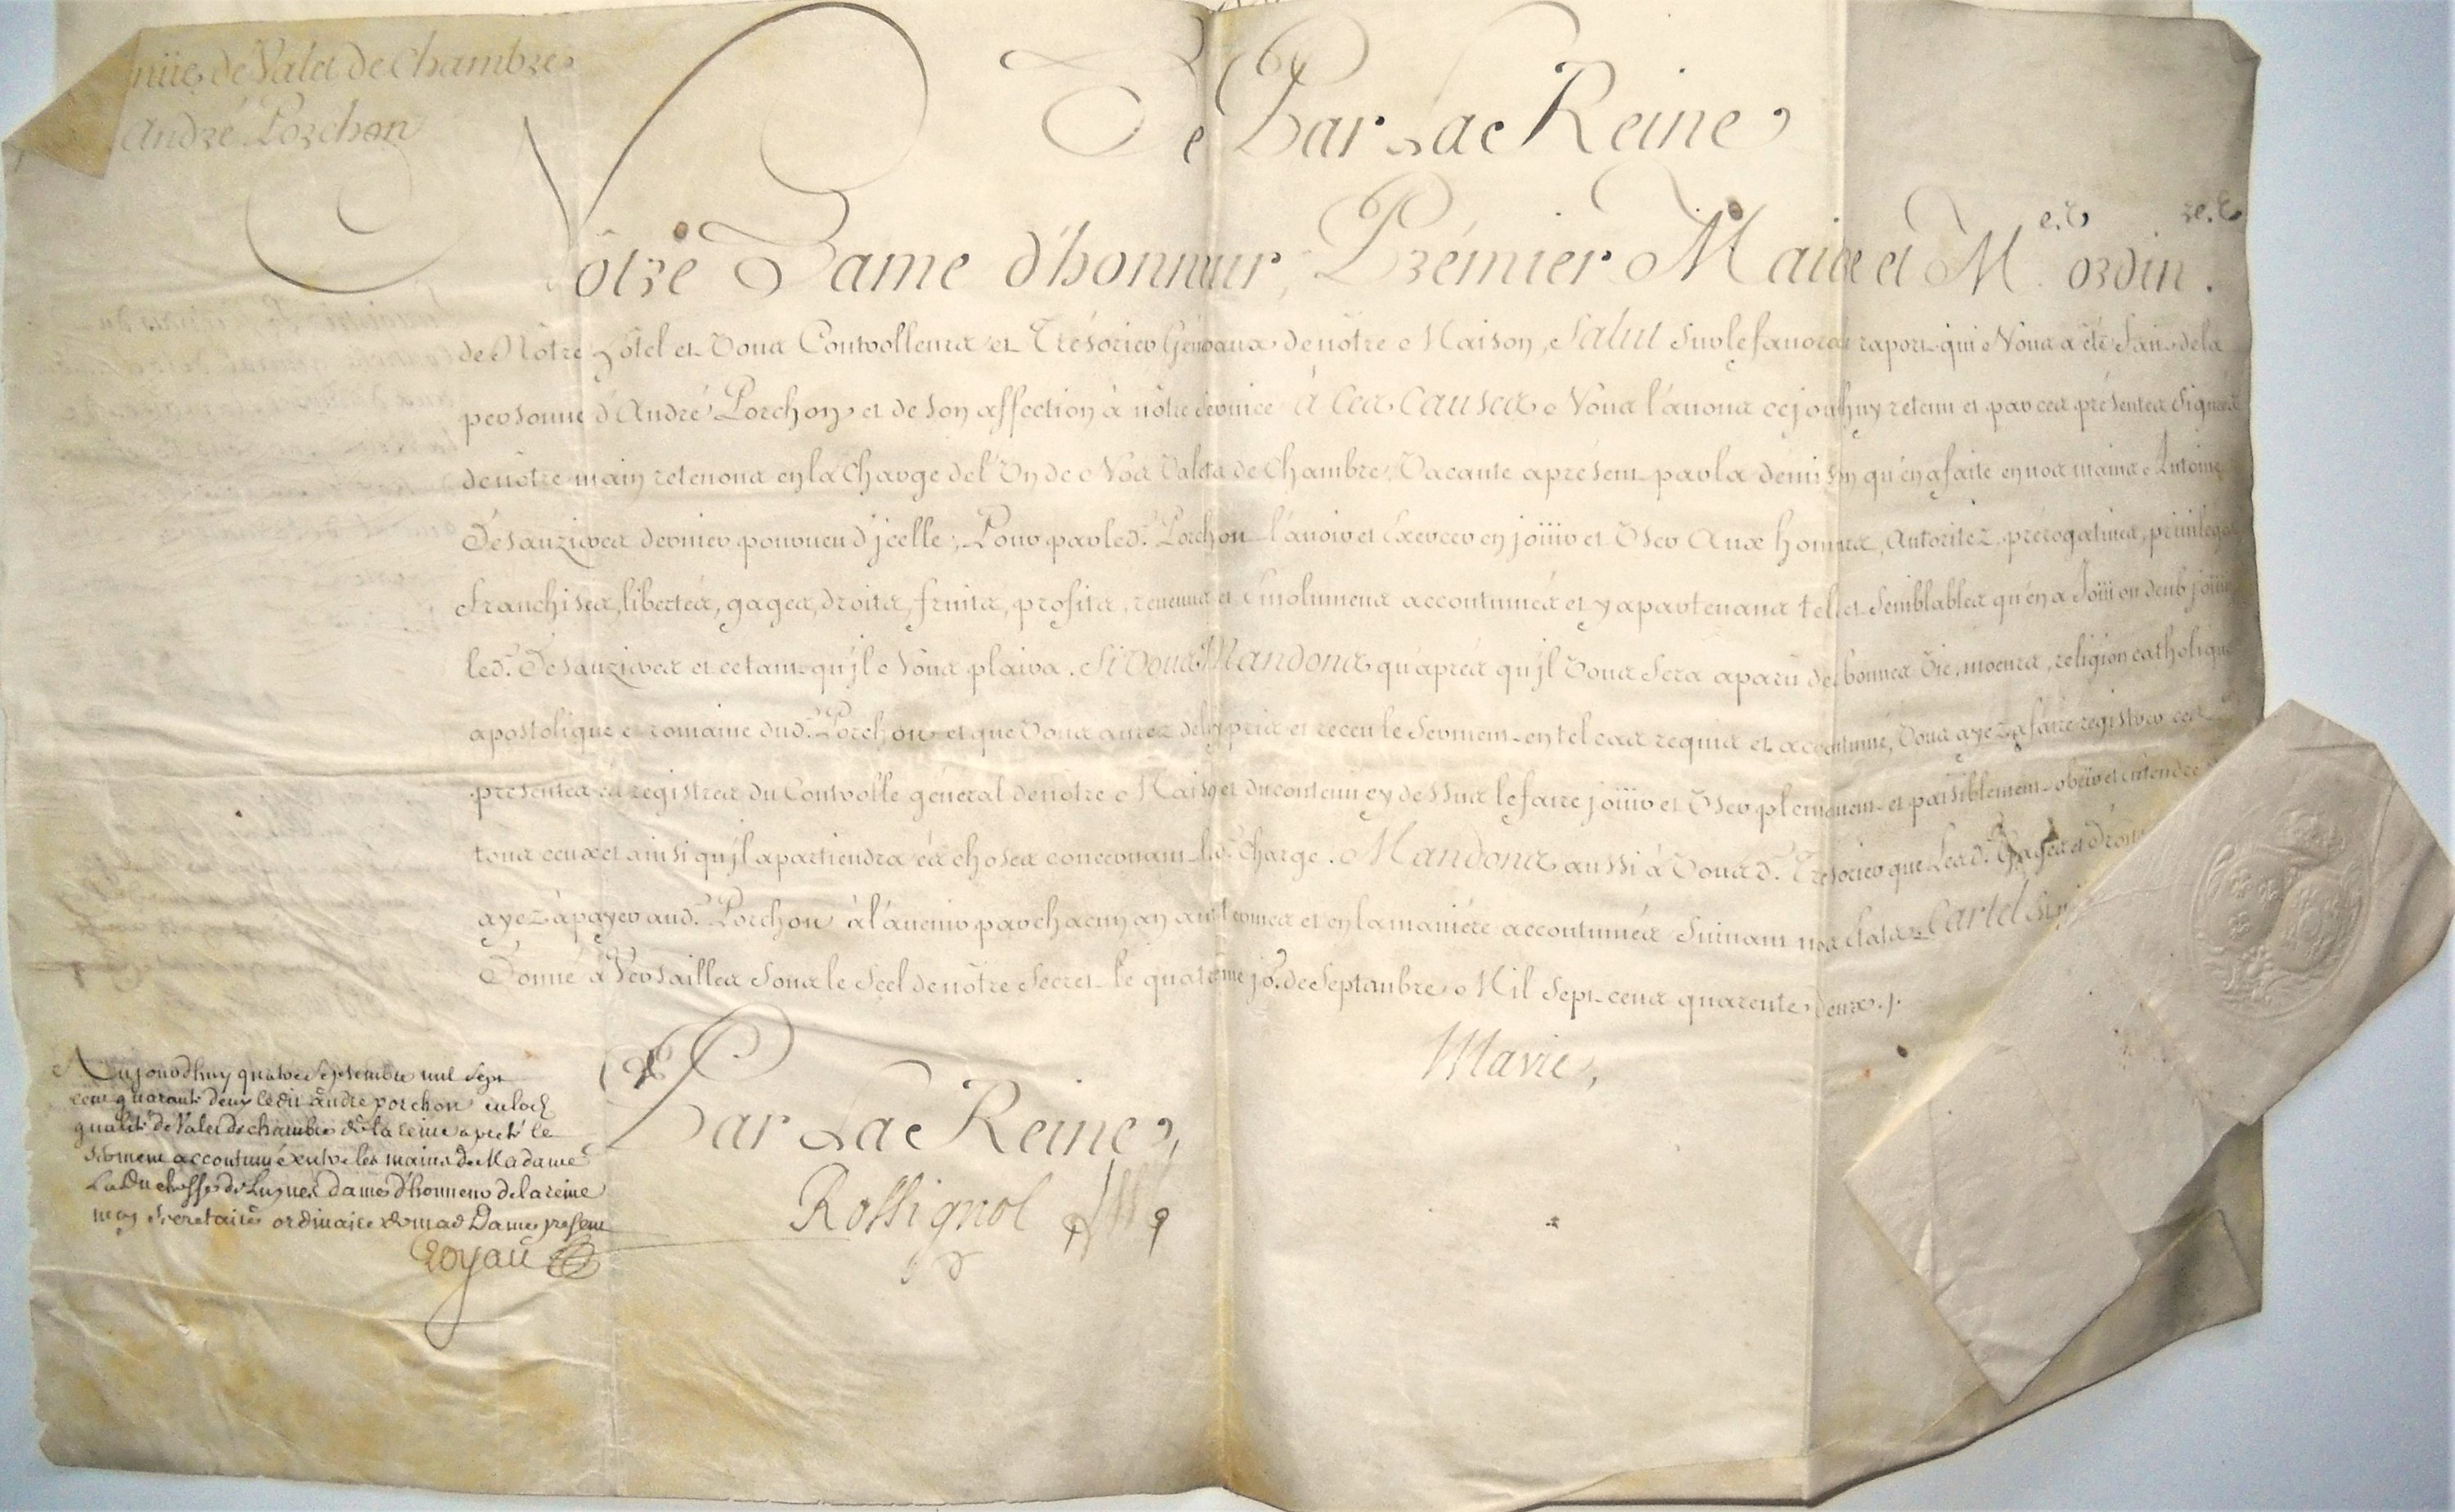 nüe de Valet de Chambre
André Porchon
De Par La Reine
Nôtre Dame d'honneur, Prémier Maitre et M.e.s ordin.re.s
de Nôtre hôtel et Vous Controlleurs et Trésorier Généraux de nôtre Maison, Salut Sur le favorable raport qui Nous a été fait de la
personne d'André Porchon et de son affection à nôtre Service à Ces Causes Nous l'avons cejourd'huy retenu et par ces présentes Signées
de nôtre main retenons en la Charge de l'Un de Nos Valets de Chambre, Vacante apresent par la démission qu'en a faite en nos mains Antoine
dernier pourvu d'jcelle; Pour par led. Porchon l'avoir et Exercer en joüir et User Aux honneurs, Autoritez, prérogatives, privileges
franchises, libertés, gages, droits, fruits, profits, revenus et Emolumens accoutumés et y apartenans tels et Semblables qu'en a Joüi ou deub joüir
led. et ce tant qu'jl Nous plaira. Si Vous Mandons qu'aprés qu'jl Vous Sera aparü des bonnes Vie, moeurs, religion catholique
apostolique et romaine dud. Porchon et que Vous aurez de luy pris et receu le Serment en tel cas requis et accoutumé, Vous ayez a faire registrer ces
presentes és registres du Controlle général de nôtre Maison et du contenu cy dessus le faire joüir et User plenement et paisiblement obeir et entendre
tous ceux et ainsi qu'jl apartiendra és choses concernant lad. Charge. Mandons aussi à Vous d. Trésorier que Lesd. Gages et droits
ayez à payer aud. Porchon à l'avenir par chacun an aux termes et en la maniére accoutumés Suivant nos Etats Car tel
Donné à Versailles Sous le Scel de nôtre Secret le quatrième jo.r de Septembre Mil Sept cens quarente deux ./.
Marie,
Par La Reine,
Rossignol
Aujourdhuy quatre Septembre mil Sept
cent quarante deux ledit andré porchon en lad
qualité de Valet de chambre de la reine a preté le
serment accoutumé entre les mains de Madame
La Duchesse de Luynes dame d'honneur de la reine
moy Secretaire ordinaire de mad Dame present